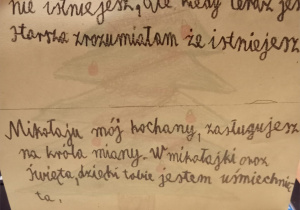 nie istniejesz, ale kiedy teraz jes
starsza zrozumiałam że istniejesz
Mikołaju mój kochany, zasługujesz
na króla miany. W mikołajki oraz
święta, dzięki tobie jestem uśmiechnię
ta.